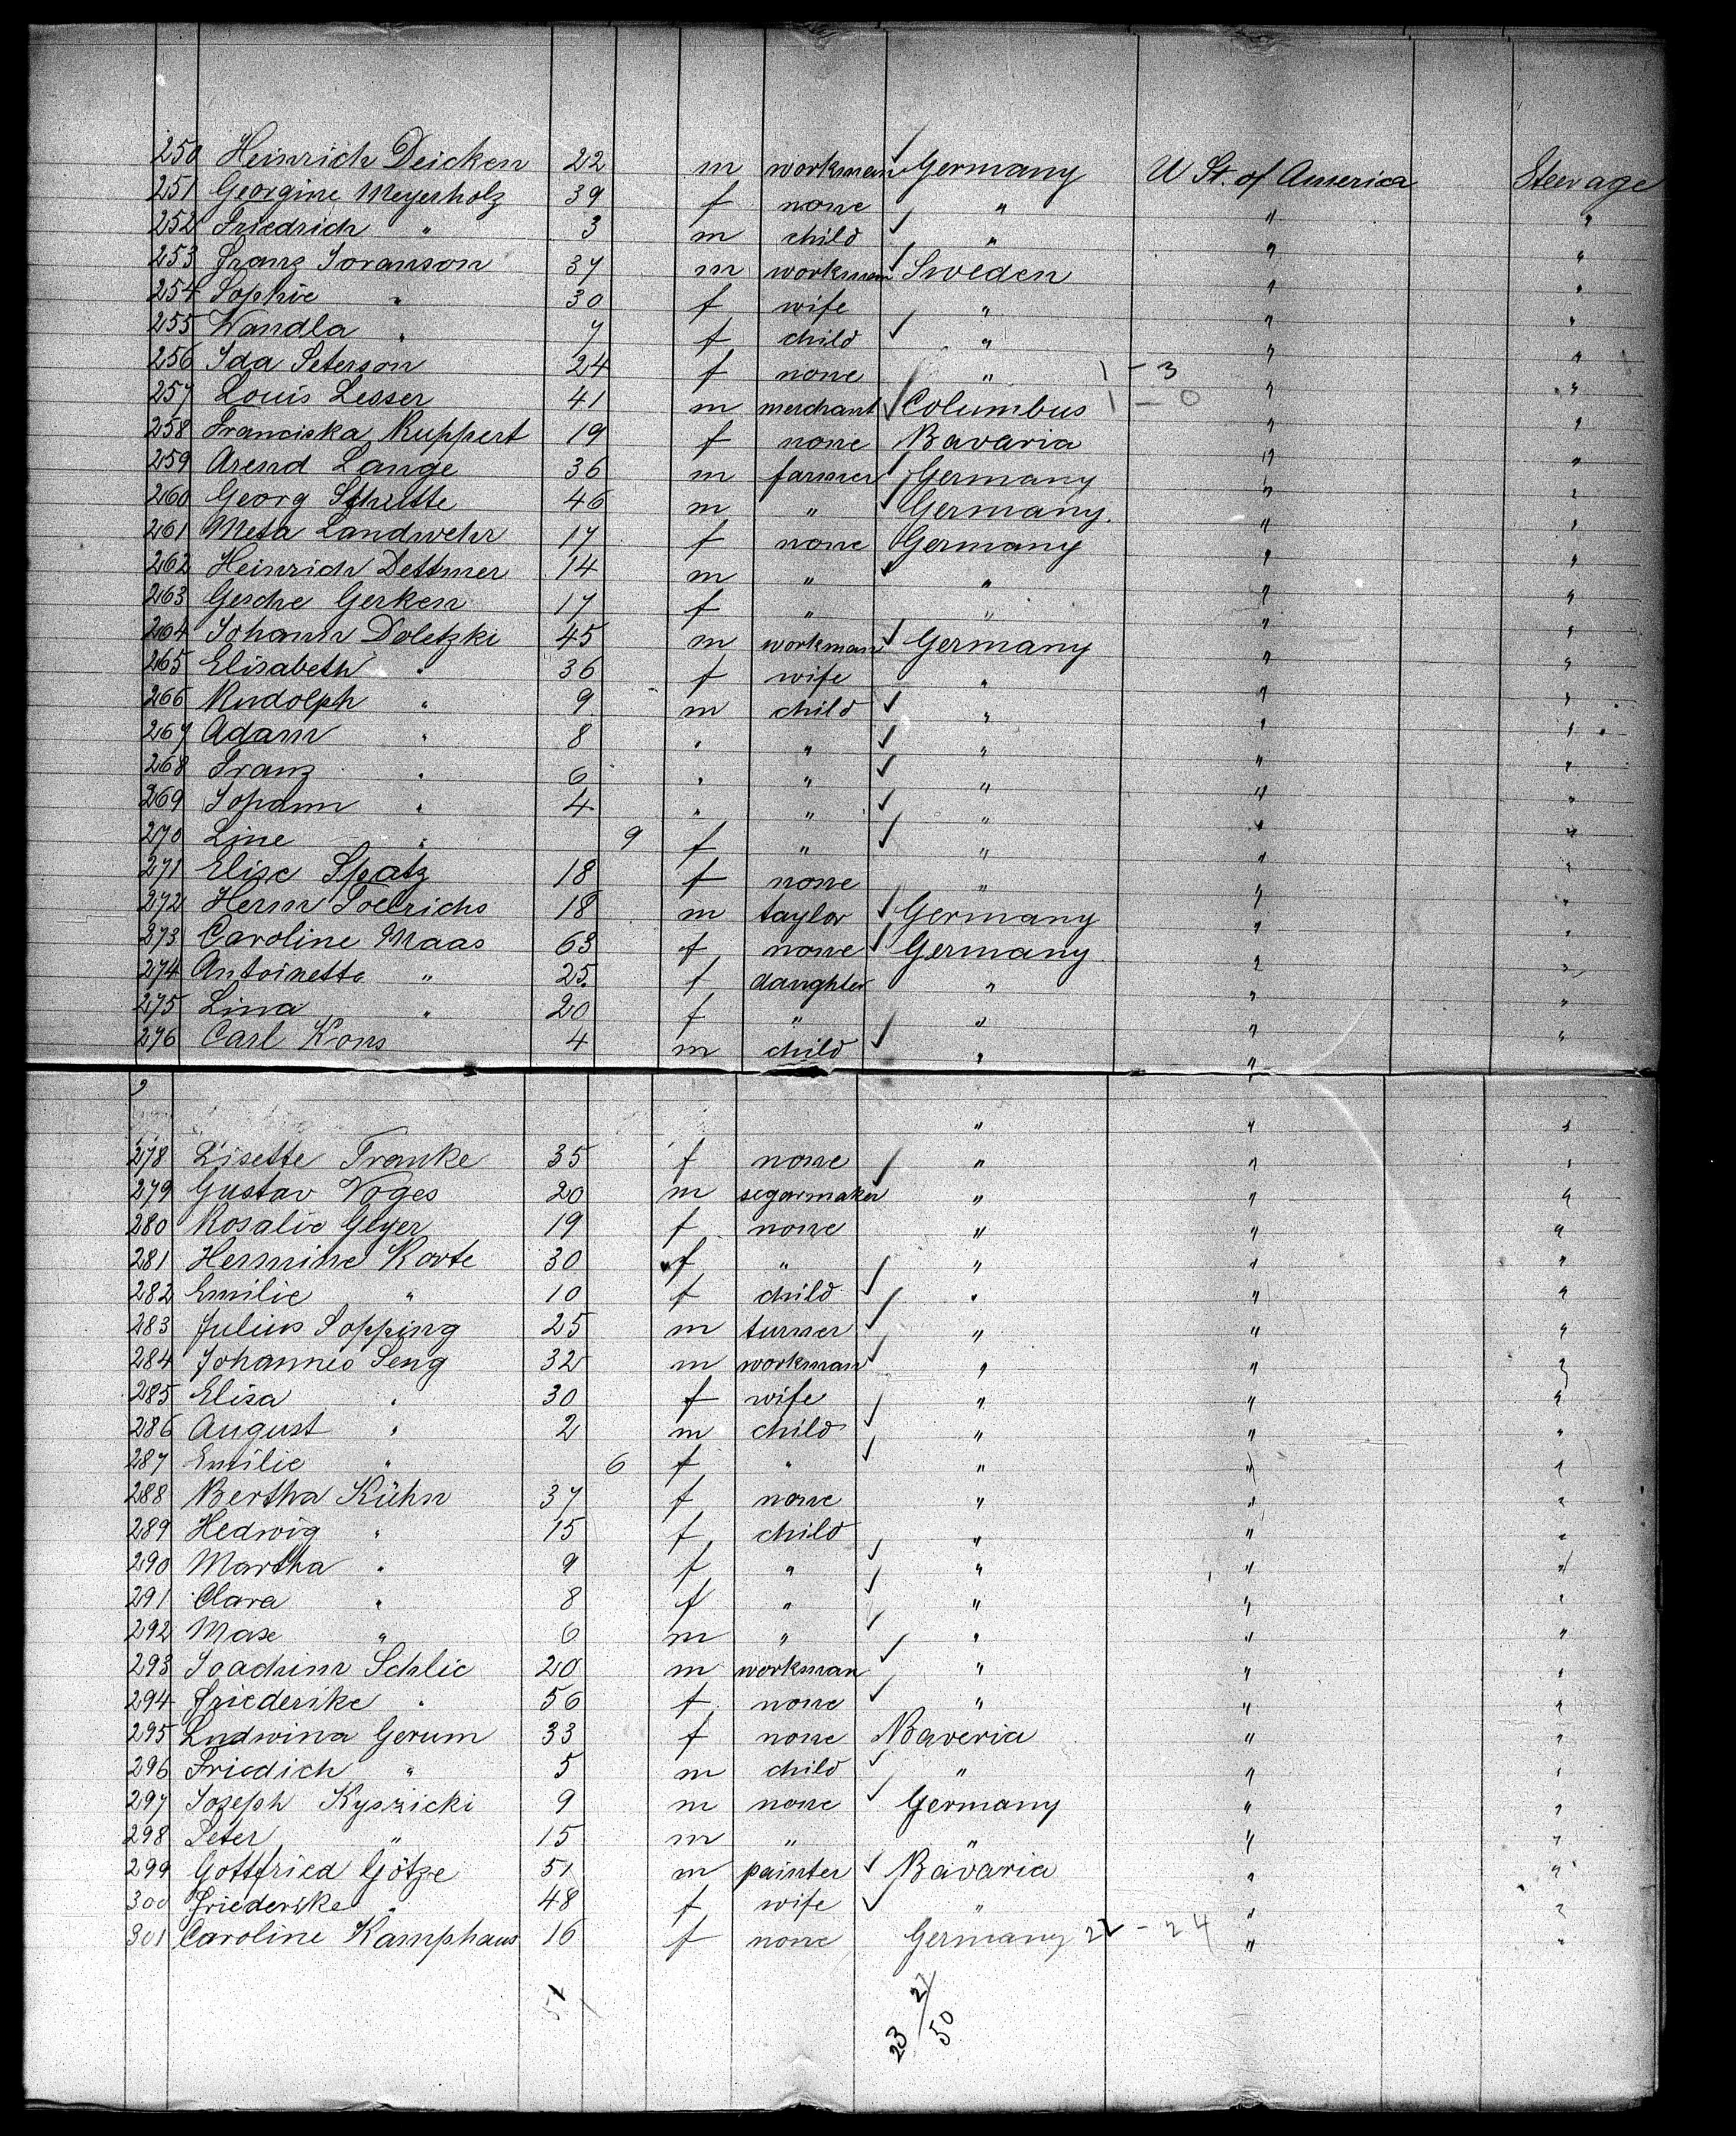 250 Heinrich Deicken 22 m workman Germany U St. of America Steerage
251 Georgine Meyerholz 39 f none " " "
252 Friedrich " 3 m child " " "
253 Franz Joranson 37 m workman Sweden " "
254 Sophie " 30 f wife " " "
255 Wandla " 7 f child " " "
256 Ida Peterson 24 f none " 1 - 3 " "
257 Louis Lesser 41 m merchant Columbus 1 - 0 " "
258 Franciska Ruppert 19 f none Bavaria " "
259 Arend Lange 36 m farmer Germany " "
260 Georg Schutte 46 m " Germany. " "
261 Meta Landwehr 17 f none Germany " "
262 Heinrich Dettmer 14 m " " " "
263 Gesche Gerken 17 f " " " "
264 Johann Doletzki 45 m workman Germany " "
265 Elisabeth " 36 f wife " " "
266 Rudolph " 9 m child " " "
267 Adam " 8 " " " " "
268 Franz " 6 " " " " "
269 Johann " 4 " " " " "
270 Line " 9 f " " " "
271 Elise Spatz 18 f none " " "
272 Herm 18 m taylor Germany " "
273 Caroline Maas 63 f none Germany " "
274 Antoinette " 25 f daughter " " "
275 Lina " 20 f " " " "
276 Carl Kons 4 m child " " "
2 " " "
278 Lisette Franke 35 f none " " "
279 Gustav Voges 20 m segarmaker " " "
280 Rosalie Geyer 19 f none " " "
281 Hermine Korte 30 f " " " "
282 Emilie " 10 f child " " "
283 Julius Popping 25 m turner " " "
284 Johannes Seng 32 m workman " " "
285 Elisa " 30 f wife " " "
286 August " 2 m child " " "
287 Emilie " 6 f " " " "
288 Bertha Kühn 37 f none " " "
289 Hedwig " 15 f child " " "
290 Martha " 9 f " " " "
291 Clara " 8 f " " " "
292 Max " 6 m " " " "
293 Joachim Schlie 20 m workman " " "
294 Friederike " 56 f none " " "
295 Ludwina Gerum 33 f none Baveria " "
296 Friedich " 5 m child " " "
297 Joseph Kyszicki 9 m none Germany " "
298 Peter " 15 m " " " "
299 Gottfried Götze 51 m painter Bavaria " "
300 Friederike " 48 f wife " " "
301 Caroline Kamphaus 16 f none Germany 22 - 24 " "
51
23 27
50